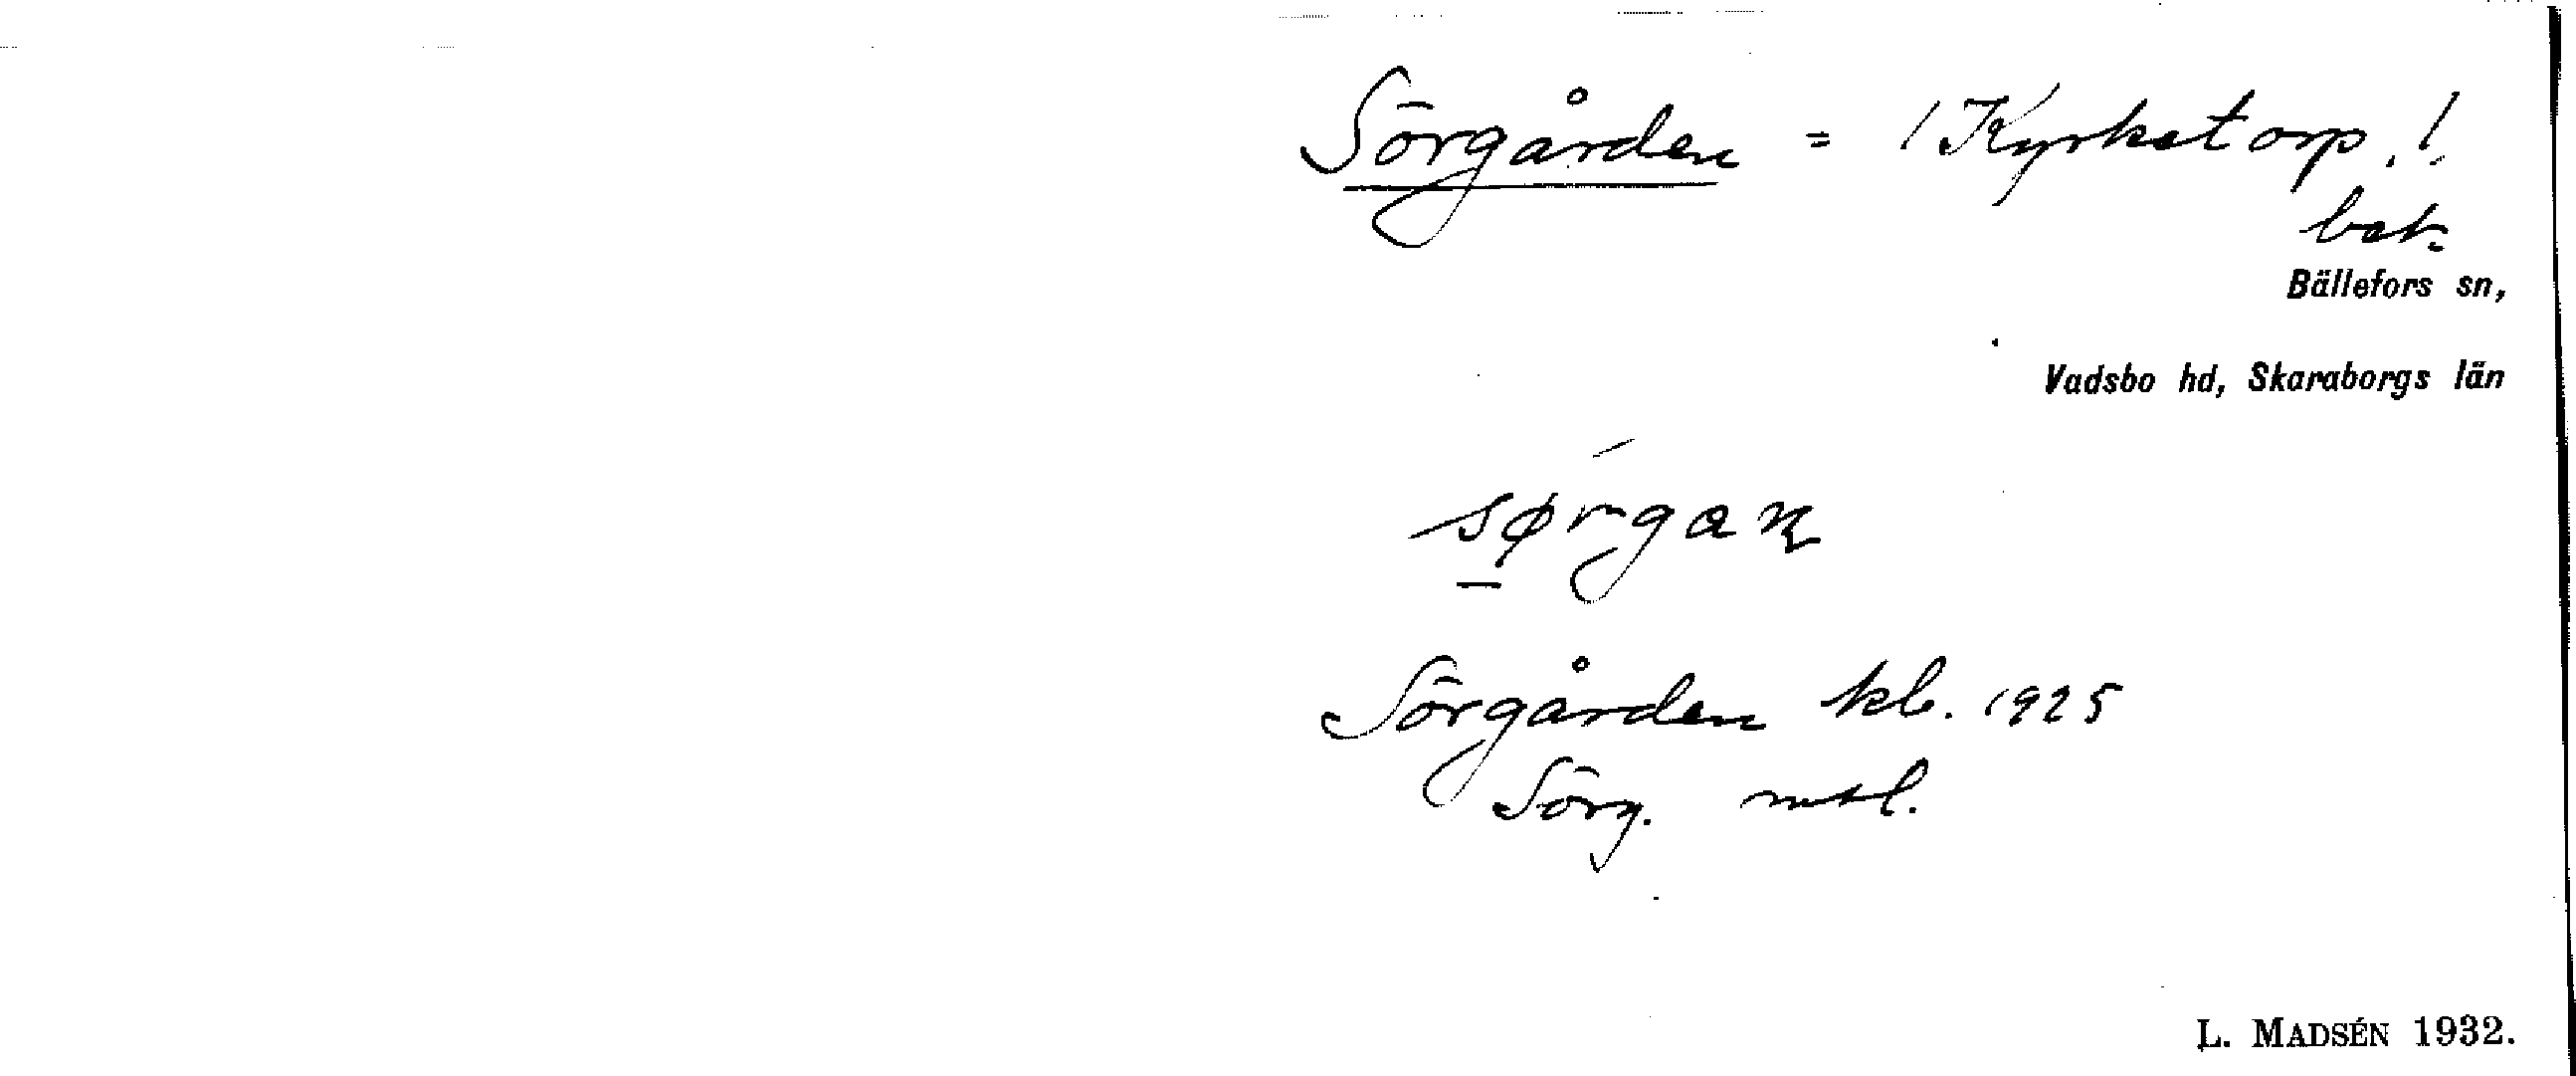 Sörgården = / Kyrkstorp. /.
beb.
Bällefors sn,
Vadsbo hd, Skaraborgs län
Sörgården kb. 1925
Sörg. mtl.
L. MADSÉN 1932.